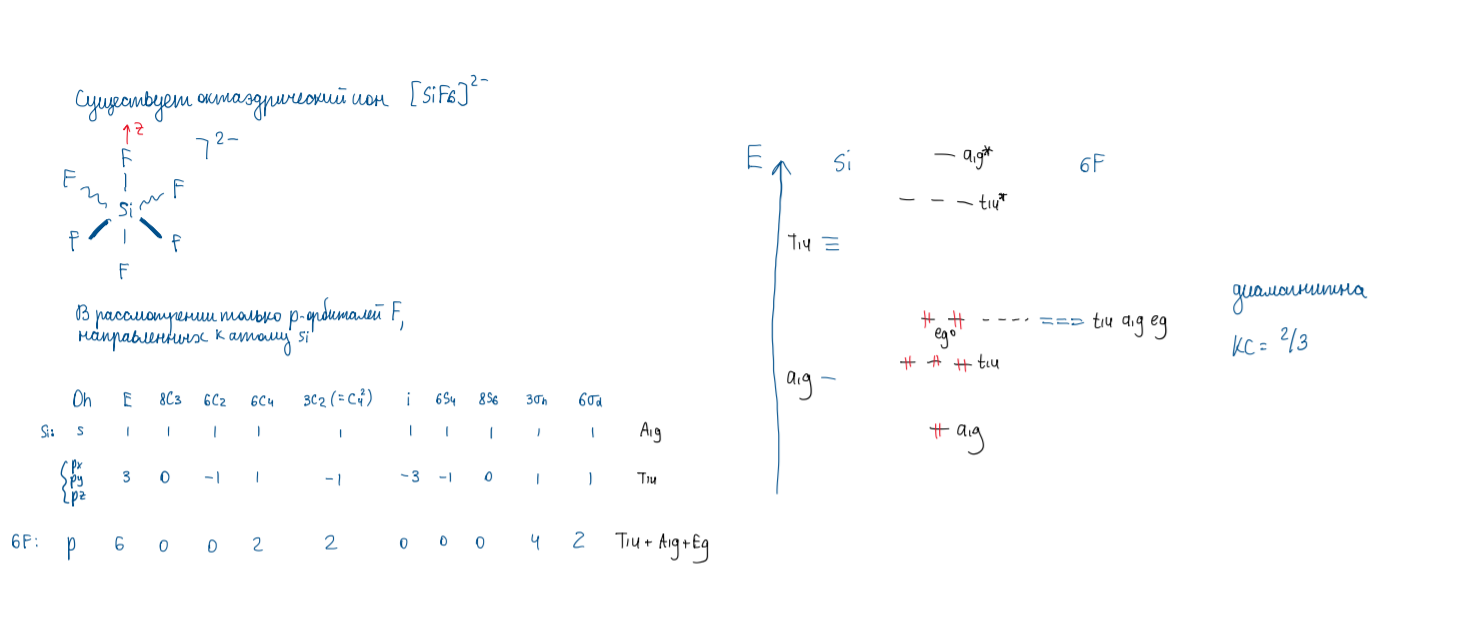 Существует октаэдрический ион [SiF6]²⁻
↑z
F
]²⁻
F F
Si
F F
F
В рассмотрении только p-орбиталей F,
направленных к атому Si
Oh E 8C3 6C2 6C4 3C2 (=C4²) i 6S4 8S6 3σh 6σd
Si: s 1 1 1 1 1 1 1 1 1 1 A1g
{px py pz 3 0 -1 1 -1 -3 -1 0 1 1 T1u
6F: p 6 0 0 2 2 0 0 0 4 2 T1u + A1g + Eg
E Si a1g* 6F
t1u*
T1u
eg⁰ t1u a1g eg
t1u
a1g
a1g
диамагнитна
КС = 2/3